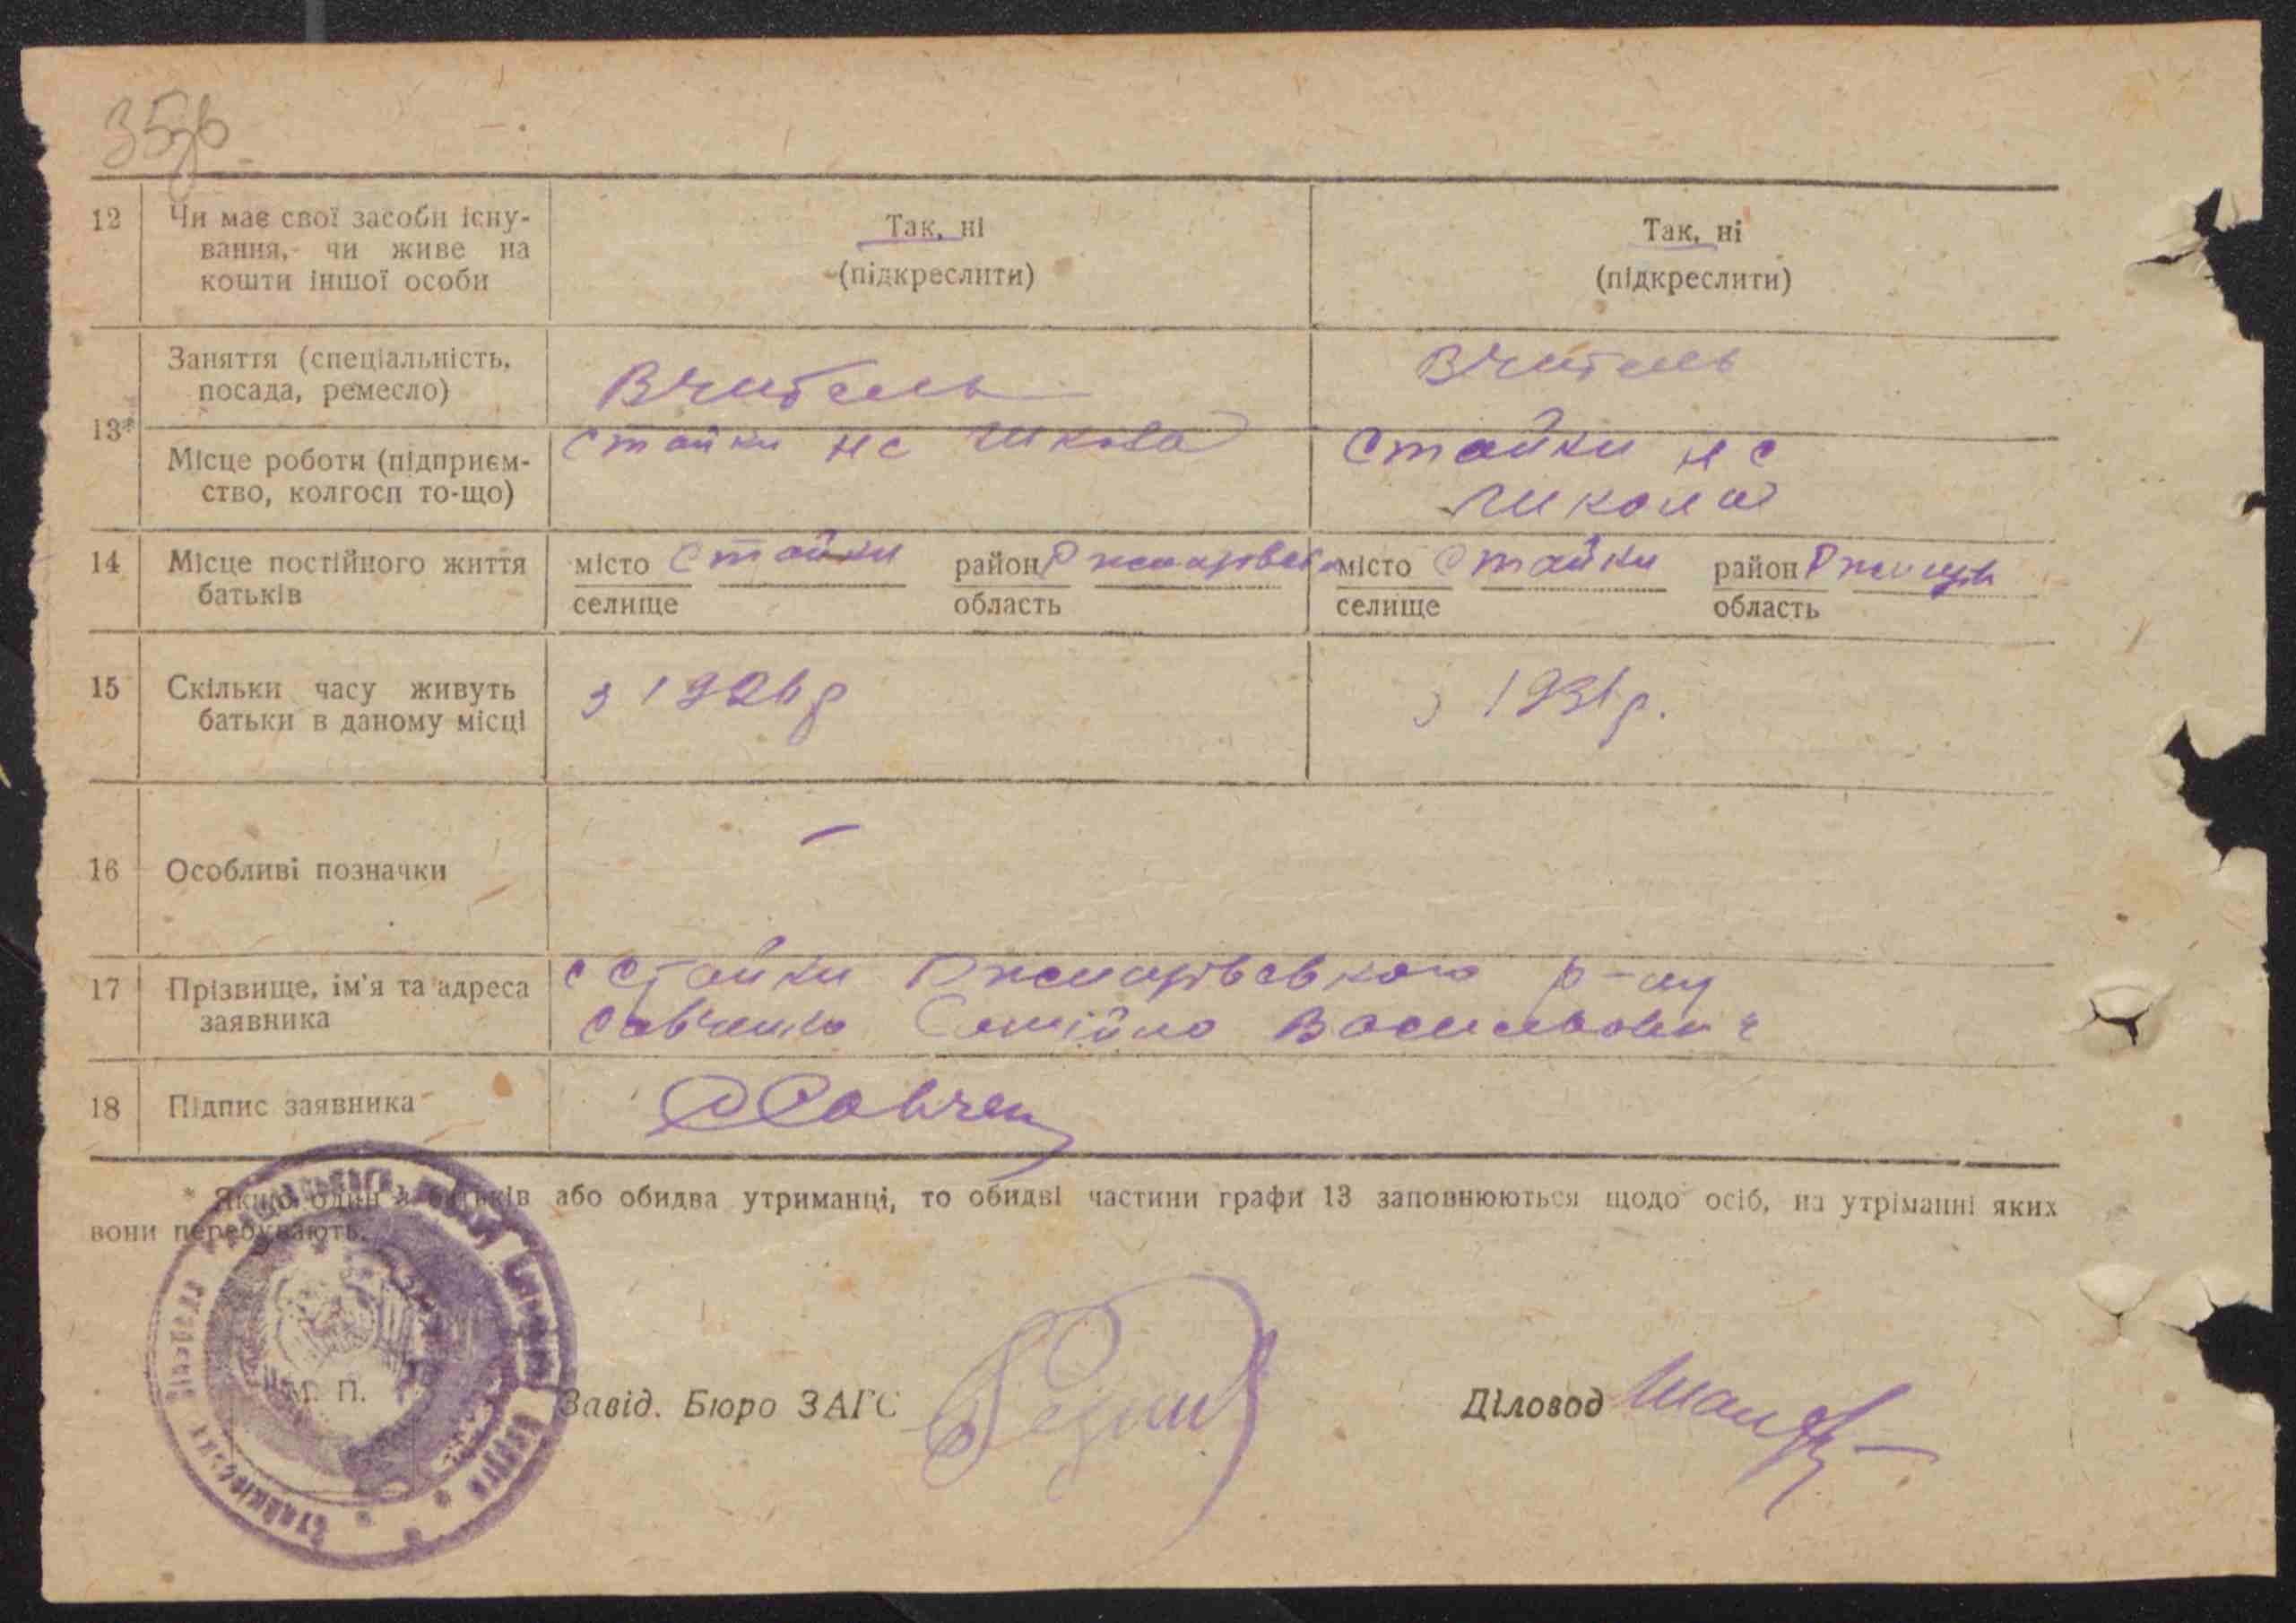 12 Чи має свої засоби існу-
вання, чи живе на
кошти іншої особи
Так, ні
(підкреслити)
Так, ні
(підкреслити)
13*
Заняття (спеціальність,
посада, ремесло)
Вчитель
Вчитель
Місце роботи (підприєм-
ство, колгосп то-що)
Стайки нс школа
Стайки нс
школа
14 Місце постійного життя
батьків
місто Стайки район
селище область
місто Стайки район
селище область
15 Скільки часу живуть
батьки в даному місці
з 1931р.
16 Особливі позначки
–
17 Прізвище, ім'я та адреса
заявника
с Стайки Ржищівського р-ну
Савченко Василькович
18 Підпис заявника
Савчен
* Якщо один з батьків або обидва утриманці, то обидві частини графи 13 заповнюються щодо осіб, на утріманні яких
вони перебувають.
М. П.
Завід. Бюро ЗАГС
Діловод